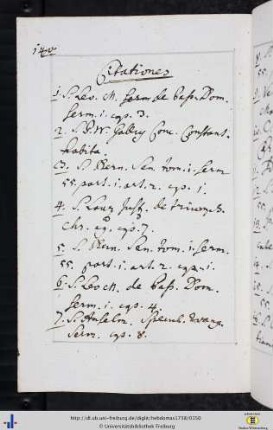 140
Citationes
1. S. Leo. M. Serm. de Pass. Dom.
Serm. i. cap. 3.
2. S. Con. Constant.
habita.
3. S. Bern. Sen. tom. i. serm
55. part. i. art. 2. cap. 1.
4. S. Laur. Just. de triumph.
Chr. ag. cap. 7.
5. S. Bern. Sen. tom. i. serm.
55. part. i. art. 2. cap. i.
6. S. Leo M. de Pass. Dom.
Serm. i. cap. 4.
7. S. Anselm. Specul. Evang.
Serm. cap. 8.
http://dl.ub.uni-freiburg.de/diglit/hebdomas1758/0150
© Universitätsbibliothek Freiburg